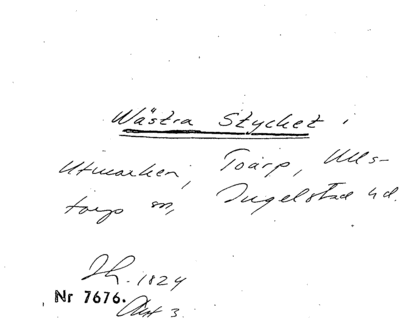 Wästra Stycket i
Utmarken, Toarp, Ulls-
torp sn, Ingelstad hd.
Lh. 1824
Nr 7676.
Akt 3.